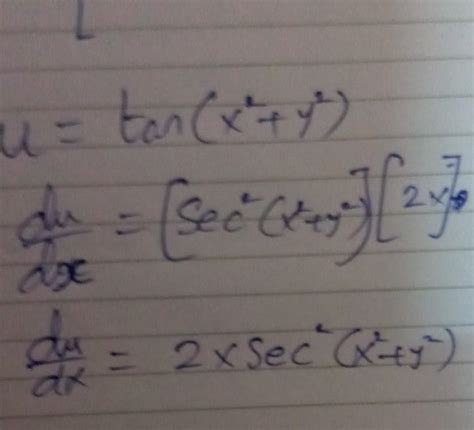 [
u = tan(x²+y²)
du/dx = [Sec²(x²+y²)][2x]
du/dx = 2x Sec²(x²+y²)